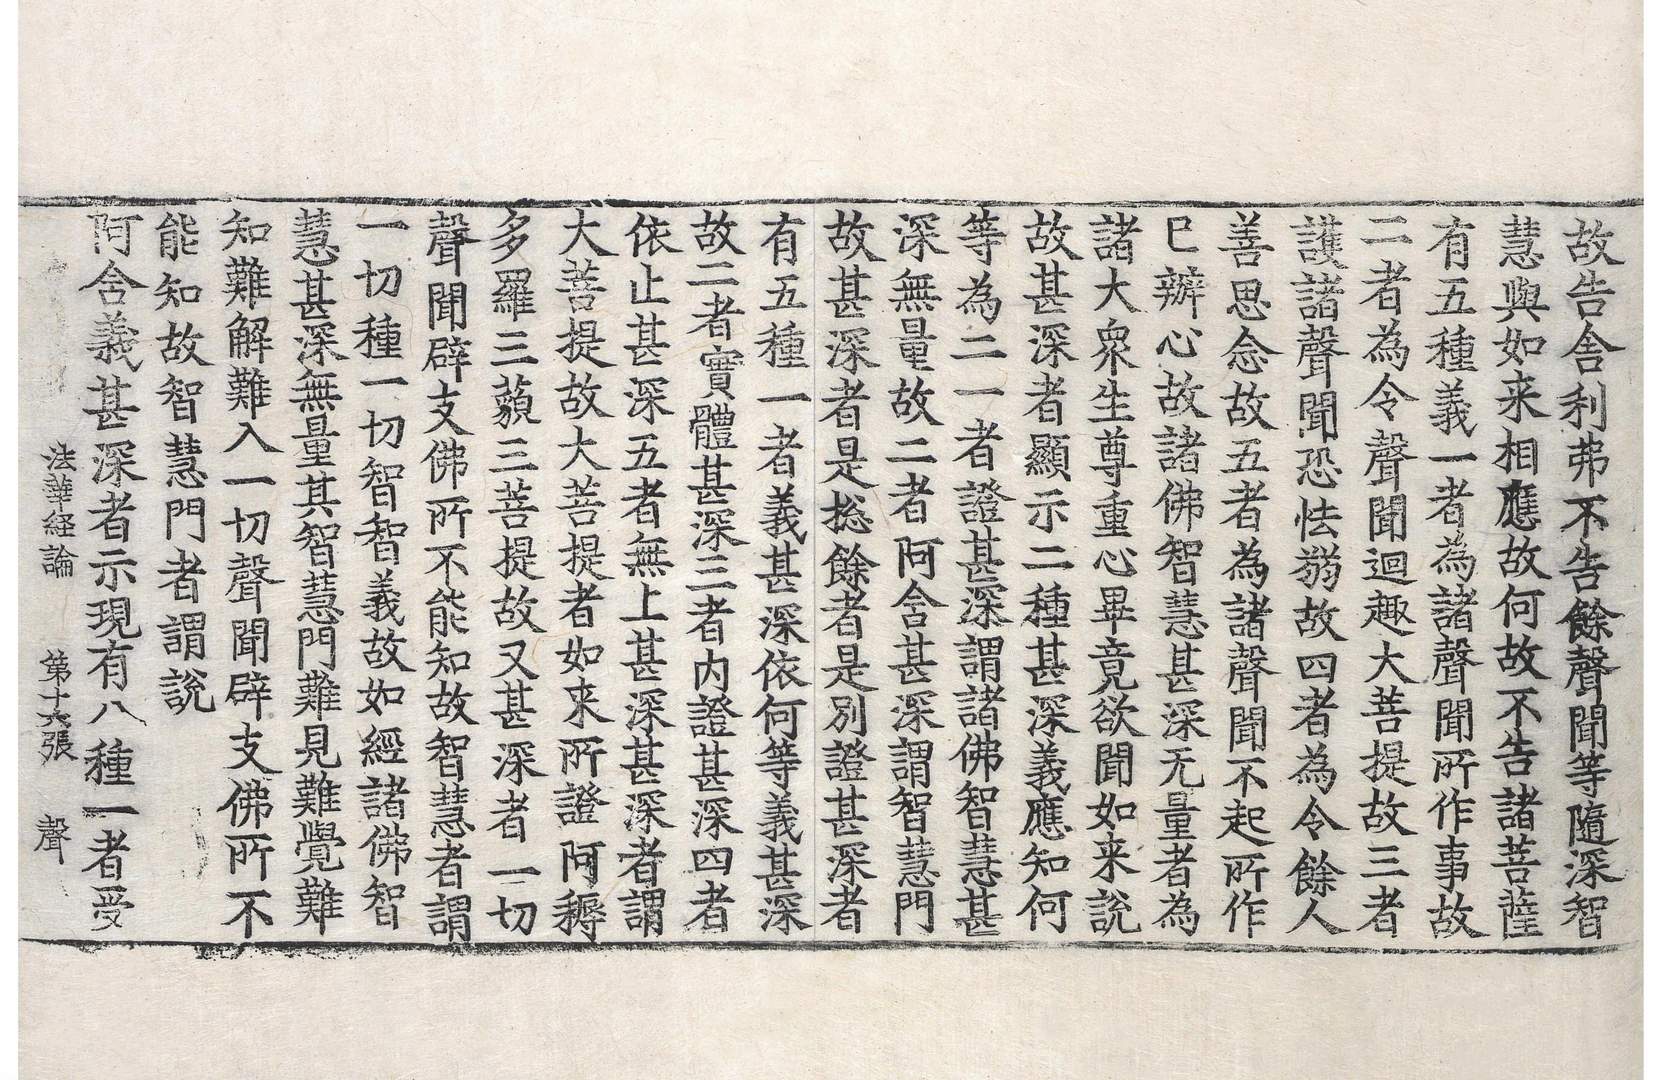 故告舍利弗不告餘聲聞等隨深智
慧與如来相應故何故不告諸菩薩
有五種義一者為諸聲聞所作事故
二者為令聲聞迴趣大菩提故三者
護諸聲聞恐怯弱故四者為令餘人
善思念故五者為諸聲聞不起所作
已辦心故諸佛智慧甚深无量者為
諸大衆生尊重心畢竟欲聞如来說
故甚深者顯示二種甚深義應知何
等為二一者證甚深謂諸佛智慧甚
深無量故二者阿含甚深謂智慧門
故甚深者是捴餘者是別證甚深者
有五種一者義甚深依何等義甚深
故二者實體甚深三者内證甚深四者
依止甚深五者無上甚深甚深者謂
大菩提故大菩提者如来所證阿耨
多羅三藐三菩提故又甚深者一切
聲聞辟支佛所不能知故智慧者謂
一切種一切智智義故如經諸佛智
慧甚深無量其智慧門難見難覺難
知難解難入一切聲聞辟支佛所不
能知故智慧門者謂說
阿含義甚深者示現有八種一者受
法華経論　第十六張　聲